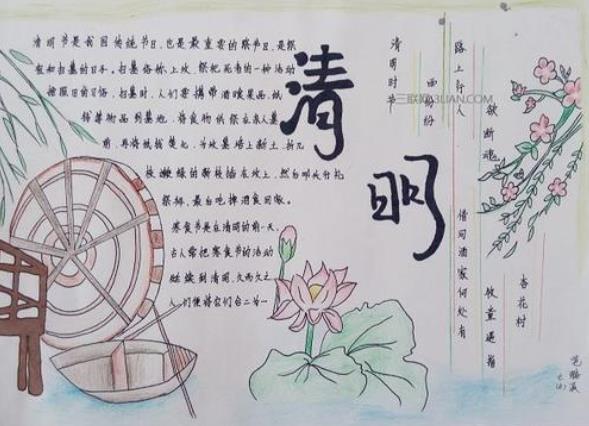 清明节是我国传统节日,也是最重要的祭节日,是祭
祖和扫墓的日子。扫墓俗称上坟,祭祀死者的一种活动
按照旧的习俗,扫墓时,人们要携带酒食果品,纸
钱等物品到墓地,将食物供祭在亲人墓
前,再将纸钱焚化,为坟墓培上新土,折几
枝嫩绿的新枝插在坟上,然后叩头行礼
祭拜,最后吃掉酒食回家。
寒食节是在清明的前一天,
古人常把寒食节的活动
延续到清明,久而久之
人们便将它们合二为一
清明
清明时节
雨纷纷
路上行人
欲断魂
借问酒家何处有
牧童遥指
杏花村
三联网3LIAN.COM